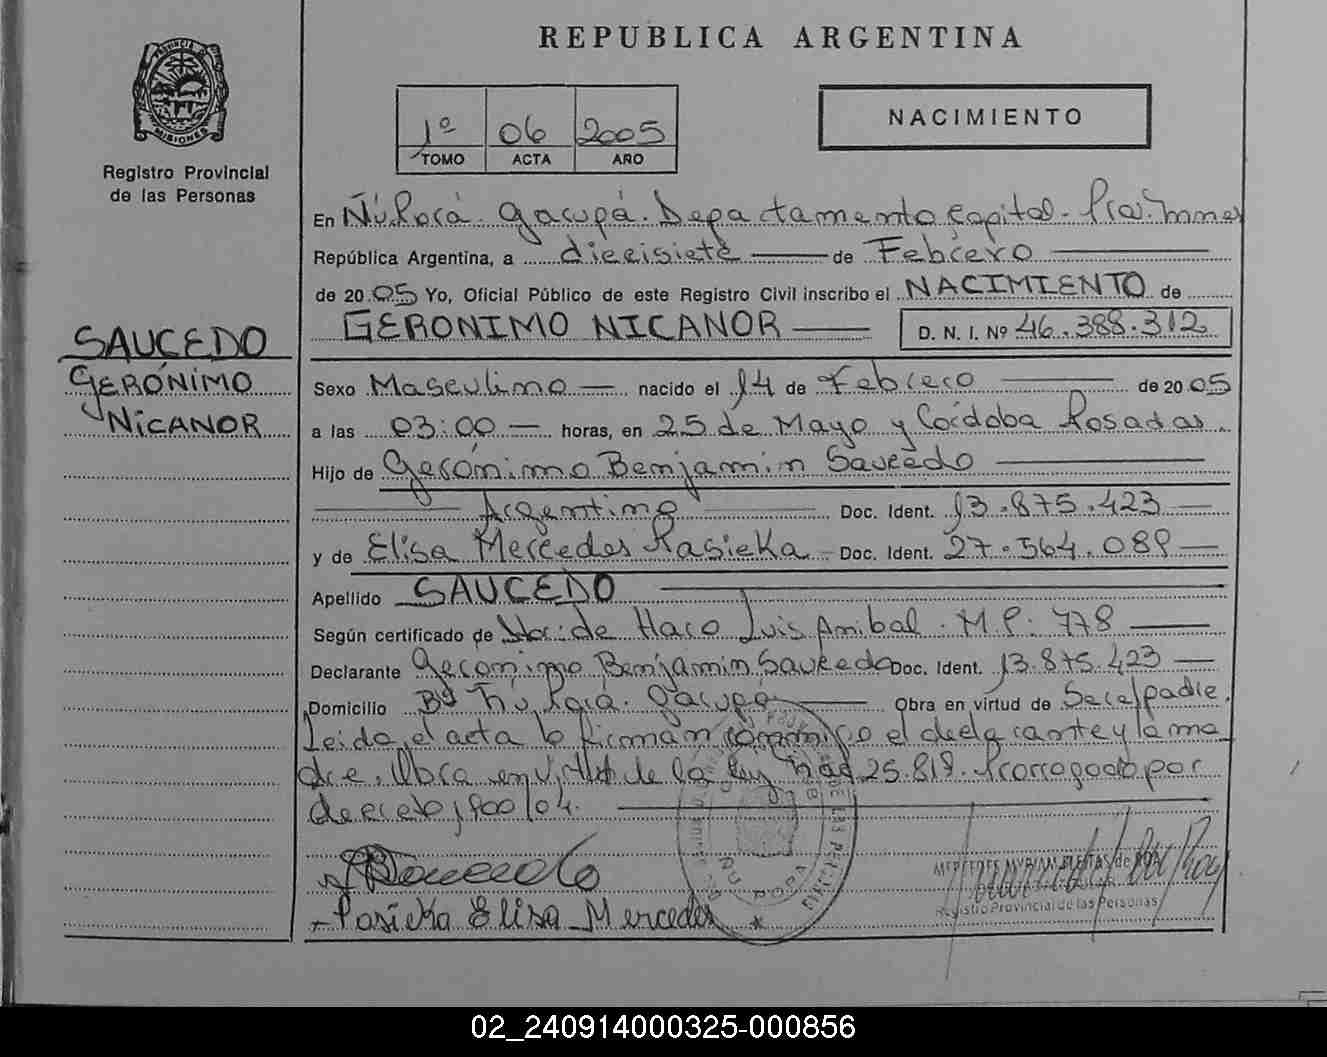 REPUBLICA ARGENTINA
PROVINCIA DE
MISIONES
Registro Provincial
de las Personas
1º 06 2005
TOMO ACTA AÑO
NACIMIENTO
En Ñu Porá. Garupá. Departamento Capital - Pcia. Mnes
República Argentina, a diecisiete de Febrero
de 2005 Yo, Oficial Público de este Registro Civil inscribo el NACIMIENTO de
GERONIMO NICANOR D. N. I. Nº 46.388.312
SAUCEDO
GERÓNIMO
NICANOR
Sexo Masculino nacido el 14 de Febrero de 2005
a las 03:00 horas, en 25 de Mayo y Córdoba Posadas.
Hijo de Gerónimo Benjamin Saucedo
Argentino Doc. Ident. 13.875.423
y de Elisa Mercedes Rasieka Doc. Ident. 27.564.089
Apellido SAUCEDO
Según certificado de Haro Luis Anibal. M.P. 778
Declarante Geronimo Benjamin Saucedo Doc. Ident. 13.875.423
Domicilio Bº Ñu Porá. Garupá Obra en virtud de Ser el padre.
Leida el acta la firman conmigo el declarante y la ma
dre. Obra en virtud de la Ley Nac 25.819. Prorrogado por
decreto 1900/04.
Rasieka Elisa Mercedes
MERCEDES MYRIAM FLEITAS de ROA
Registro Provincial de las Personas
02_240914000325-000856